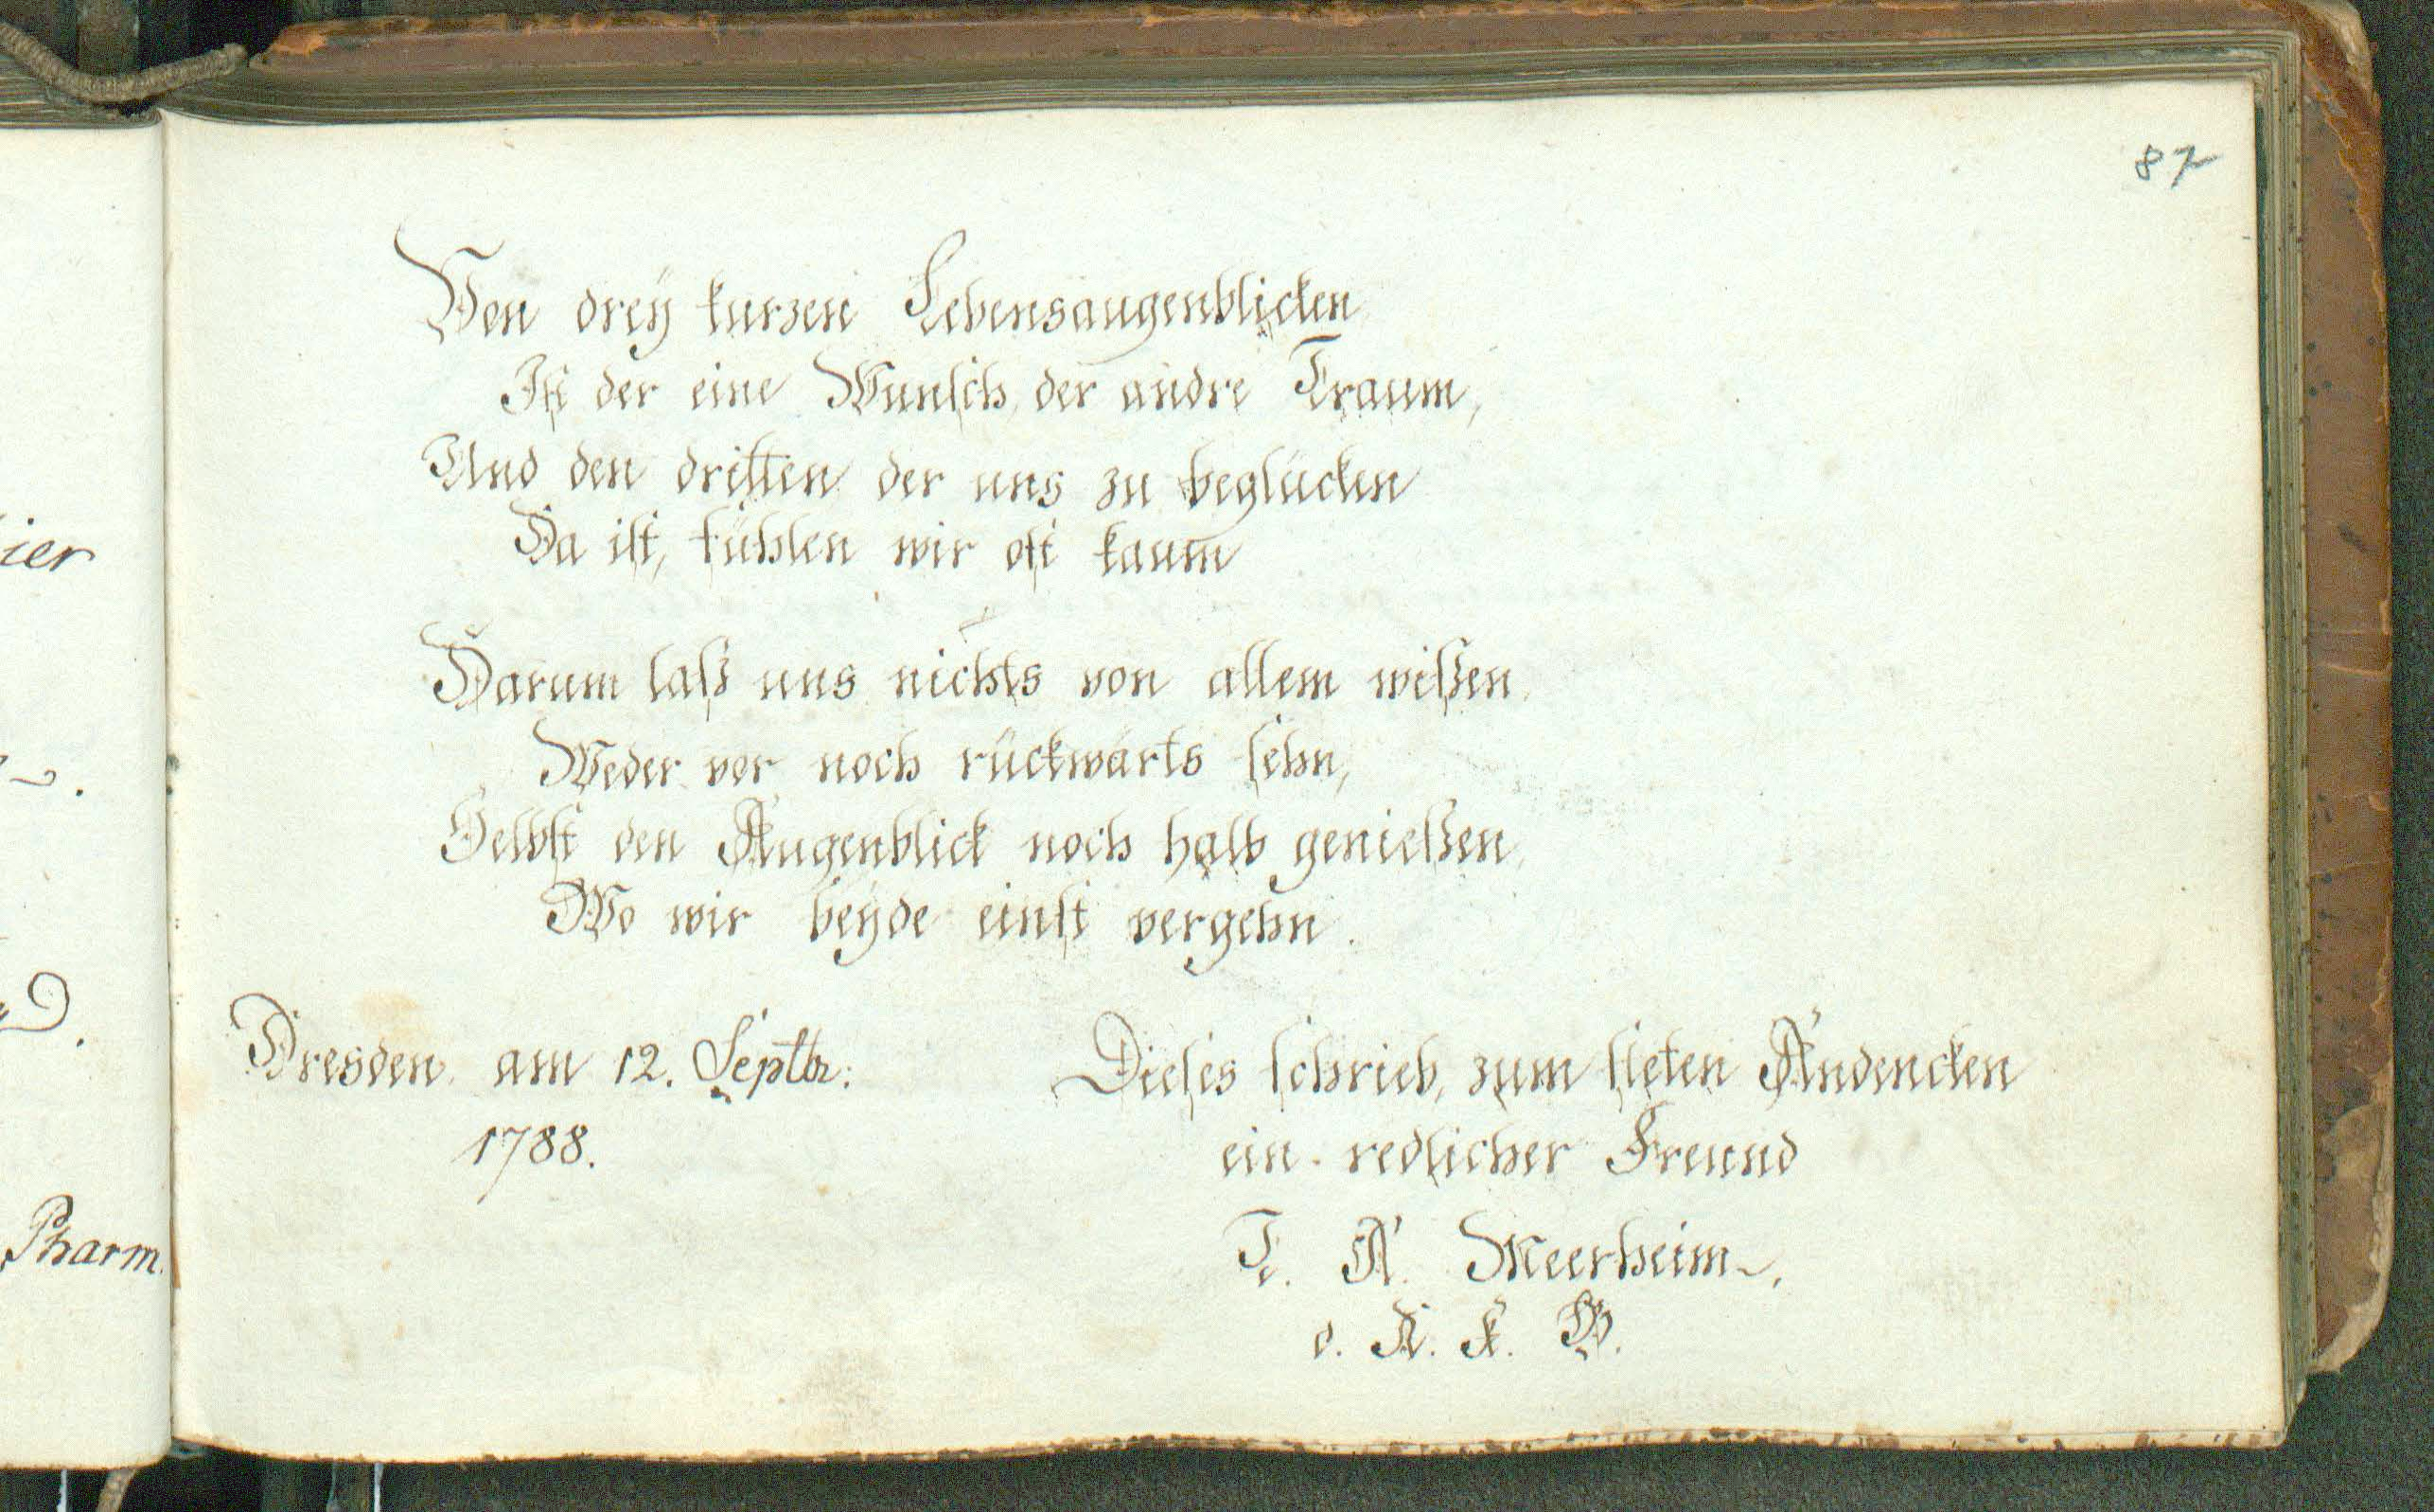 87
Von dreÿ kurzen Lebensaugenblicken
Ist der eine Wunsch, der andre Traum,
Und den dritten der uns zu beglücken
Da ist, fühlen wir oft kaum
Darum laß uns nichts von allem wißen,
Weder vor noch rückwärts sehn,
Selbst den Augenblick noch halb genießen,
Wo wir beÿde einst vergehn.
Dresden am 12. Septbr:
1788.
Dieses schrieb, zum steten Andencken
ein redlicher Freund
A. Meerheim.
d. A. K. B.
ier
Pharm.